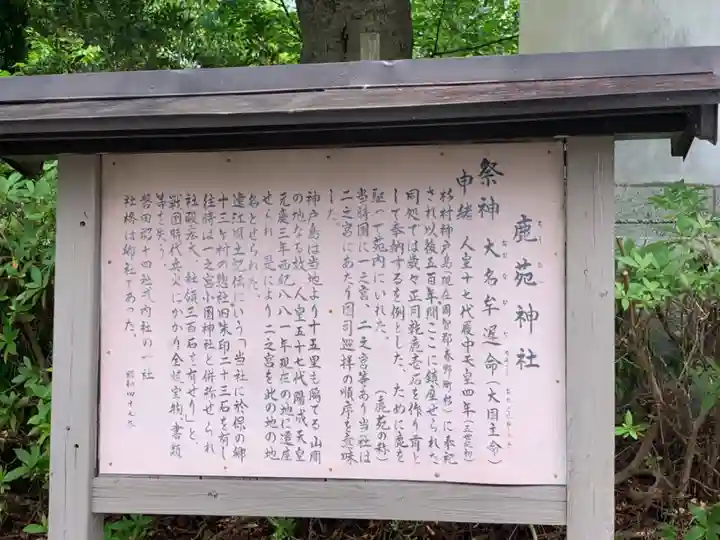 鹿苑神社
祭神 大名牟遅命(大国主命)
申緒 人皇十七代履中天皇四年(五世紀初)
杉村神戸島(現在周智郡春野町杉)に奉祀
され以後五百年間ここに鎮座せられた
同処では歳々正月雑鹿壱石を作り荷と
して奉納するを例とした、ために鹿を
駆って苑内にいれた。(鹿苑の称)
当時国に一之宮、二之宮等あり当社は
二之宮にあたり国司巡拝の順序を意味
した。
神戸島は当地より十五里も隔てる山間
の地なる故、人皇五十七代陽成天皇
元慶三年西紀八八一年現在の地に遷座
せられ、是により二之宮を此の地の地
名とせられた。
遠江風土記伝にいう「当社に於保の郷
十三ヶ村の惣社旧朱印二十三石を有し
往時は一之宮小国神社と併称せられ
社殿宏大、社領三百石を有せり」と、
戦国時代兵火にかかり全焼宝物、書類
等を失う。
磐田郡十四社式内社の一社
社格は郷社であった。
昭和四十九年